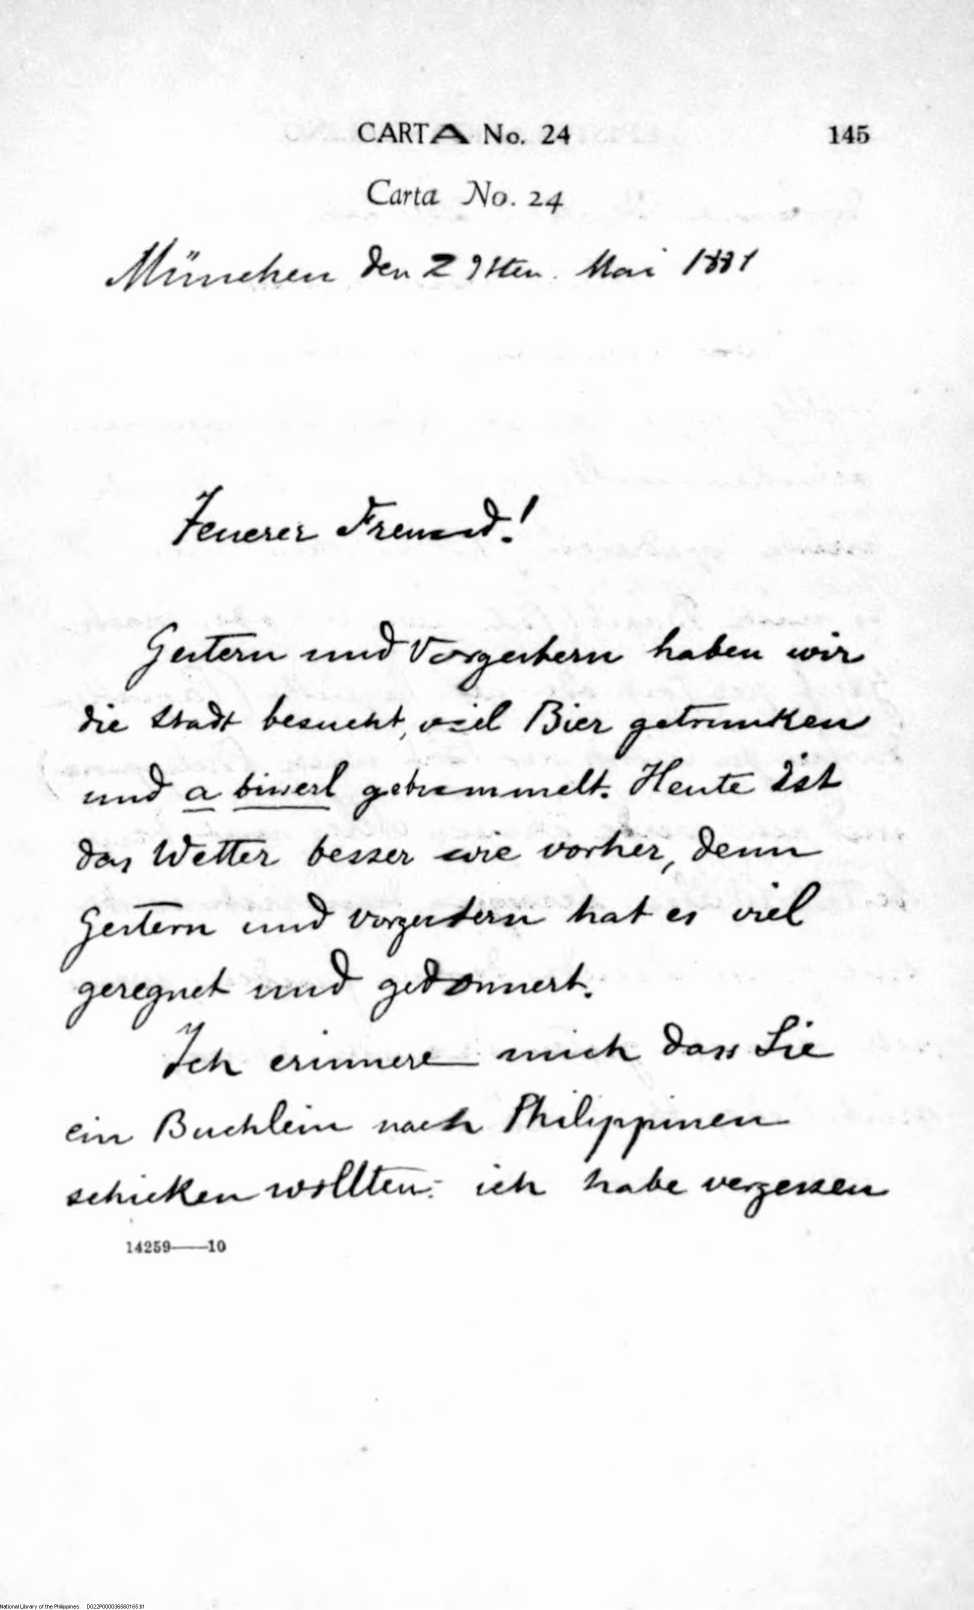 CARTA No. 24 145
Carta No. 24
München den 29sten. Mai 1887
Teuerer Freund!
Gestern und Vorgestern haben wir
die Stadt besucht, viel Bier getrunken
und a biserl getrammelt. Heute ist
das Wetter besser wie vorher, denn
Gestern und vorgestern hat es viel
geregnet und gedonnert.
Ich erinnere mich dass Sie
ein Buchlein nach Philippinen
schicken wollten: ich habe vergessen
14259——10
National Library of the Philippines